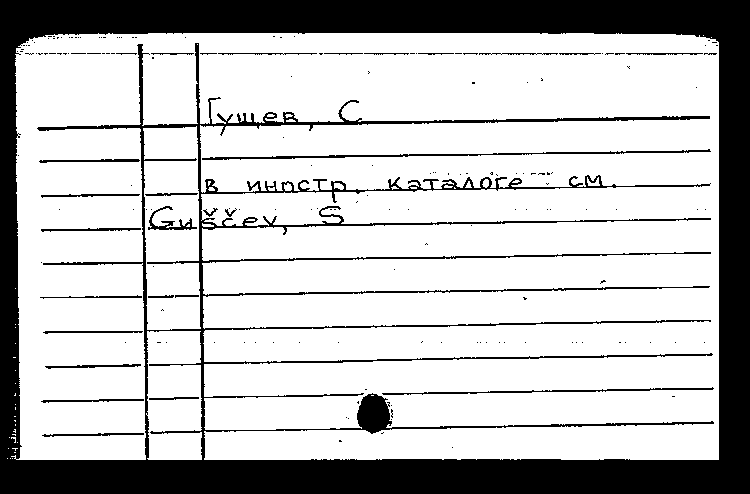 Гущев, С
в иностр. каталоге см.
Guščev, S